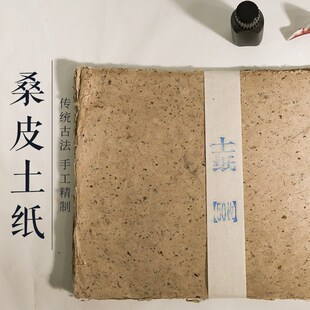 桑皮土纸
传统古法 手工精制
土纸
【50枚】